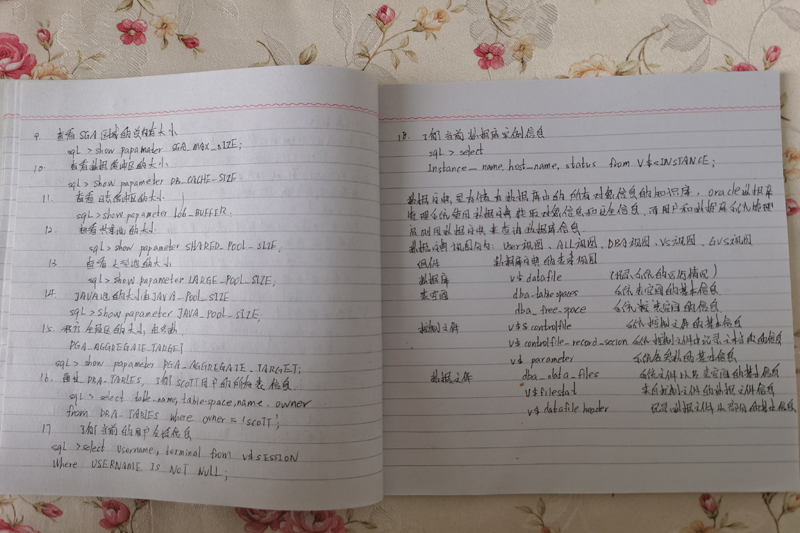 9. 查看SGA区域的总体大小
sqL > show papamater SGA_MAX_SIZE;
10. 查看数据缓冲区的大小
sqL > show papameter DB_CACHE-SIZE
11. 查看日志缓冲区的大小
sqL > show papameter LOG_BUFFER.
12. 查看共享池的大小
sqL > show papameter SHARED_POOL-SIZE,
13 查看大型池的大小
sqL > show parameter LARGE_POOL_SIZE,
14. JAVA池的大小由JAVA-POOL_SIZE
sqL > show parameter JAVA_POOL_SIZE,
15. 程序全局区的大小,由参数
PGA_AGGREGATE_TARGET
sqL > show papameter PGA_AGGREGATE_TARGET;
16. 通过DBA_TABLES, 了解SCOTT用户的所有表信息
sqL > select table_name, table-space,name. owner
from DBA_TABLES where owner = 'SCOTT';
17 了解当前的用户连接信息
sqL > select username, terminal from v$SESSION
where USERNAME IS NOT NULL;
18. 了解当前数据库实例信息
sqL > select
Instance_name, host_name, status from V$<INSTANCE;
数据字典是存储在数据库中的所有对象信息的知识库, oracle数据库
管理系统使用数据字典获取对象信息和安全信息,而用户和数据库系统管理
员则用数据字典来查询数据库信息
数据字典视图分为: User视图、ALL视图、DBA视图、V$视图、GV$视图
组件 数据库字典的表或视图
数据库 v$datafile (记录系统的运行情况)
表空间 dba-tablespaces 系统表空间的基本信息
dba_free_space 系统表空间的信息
控制文件 v$controlfile 系统控制文件的基本信息
v$controlfile_record_secion 系统控制文件中记录文件的信息
v$ parameter 系统各参数的基本信息
数据文件 dba_data_files 系统文件以及表空间的基本信息
v$filestat 来自控制文件的数据文件信息
v$datafile header 数据文件头部的基本信息